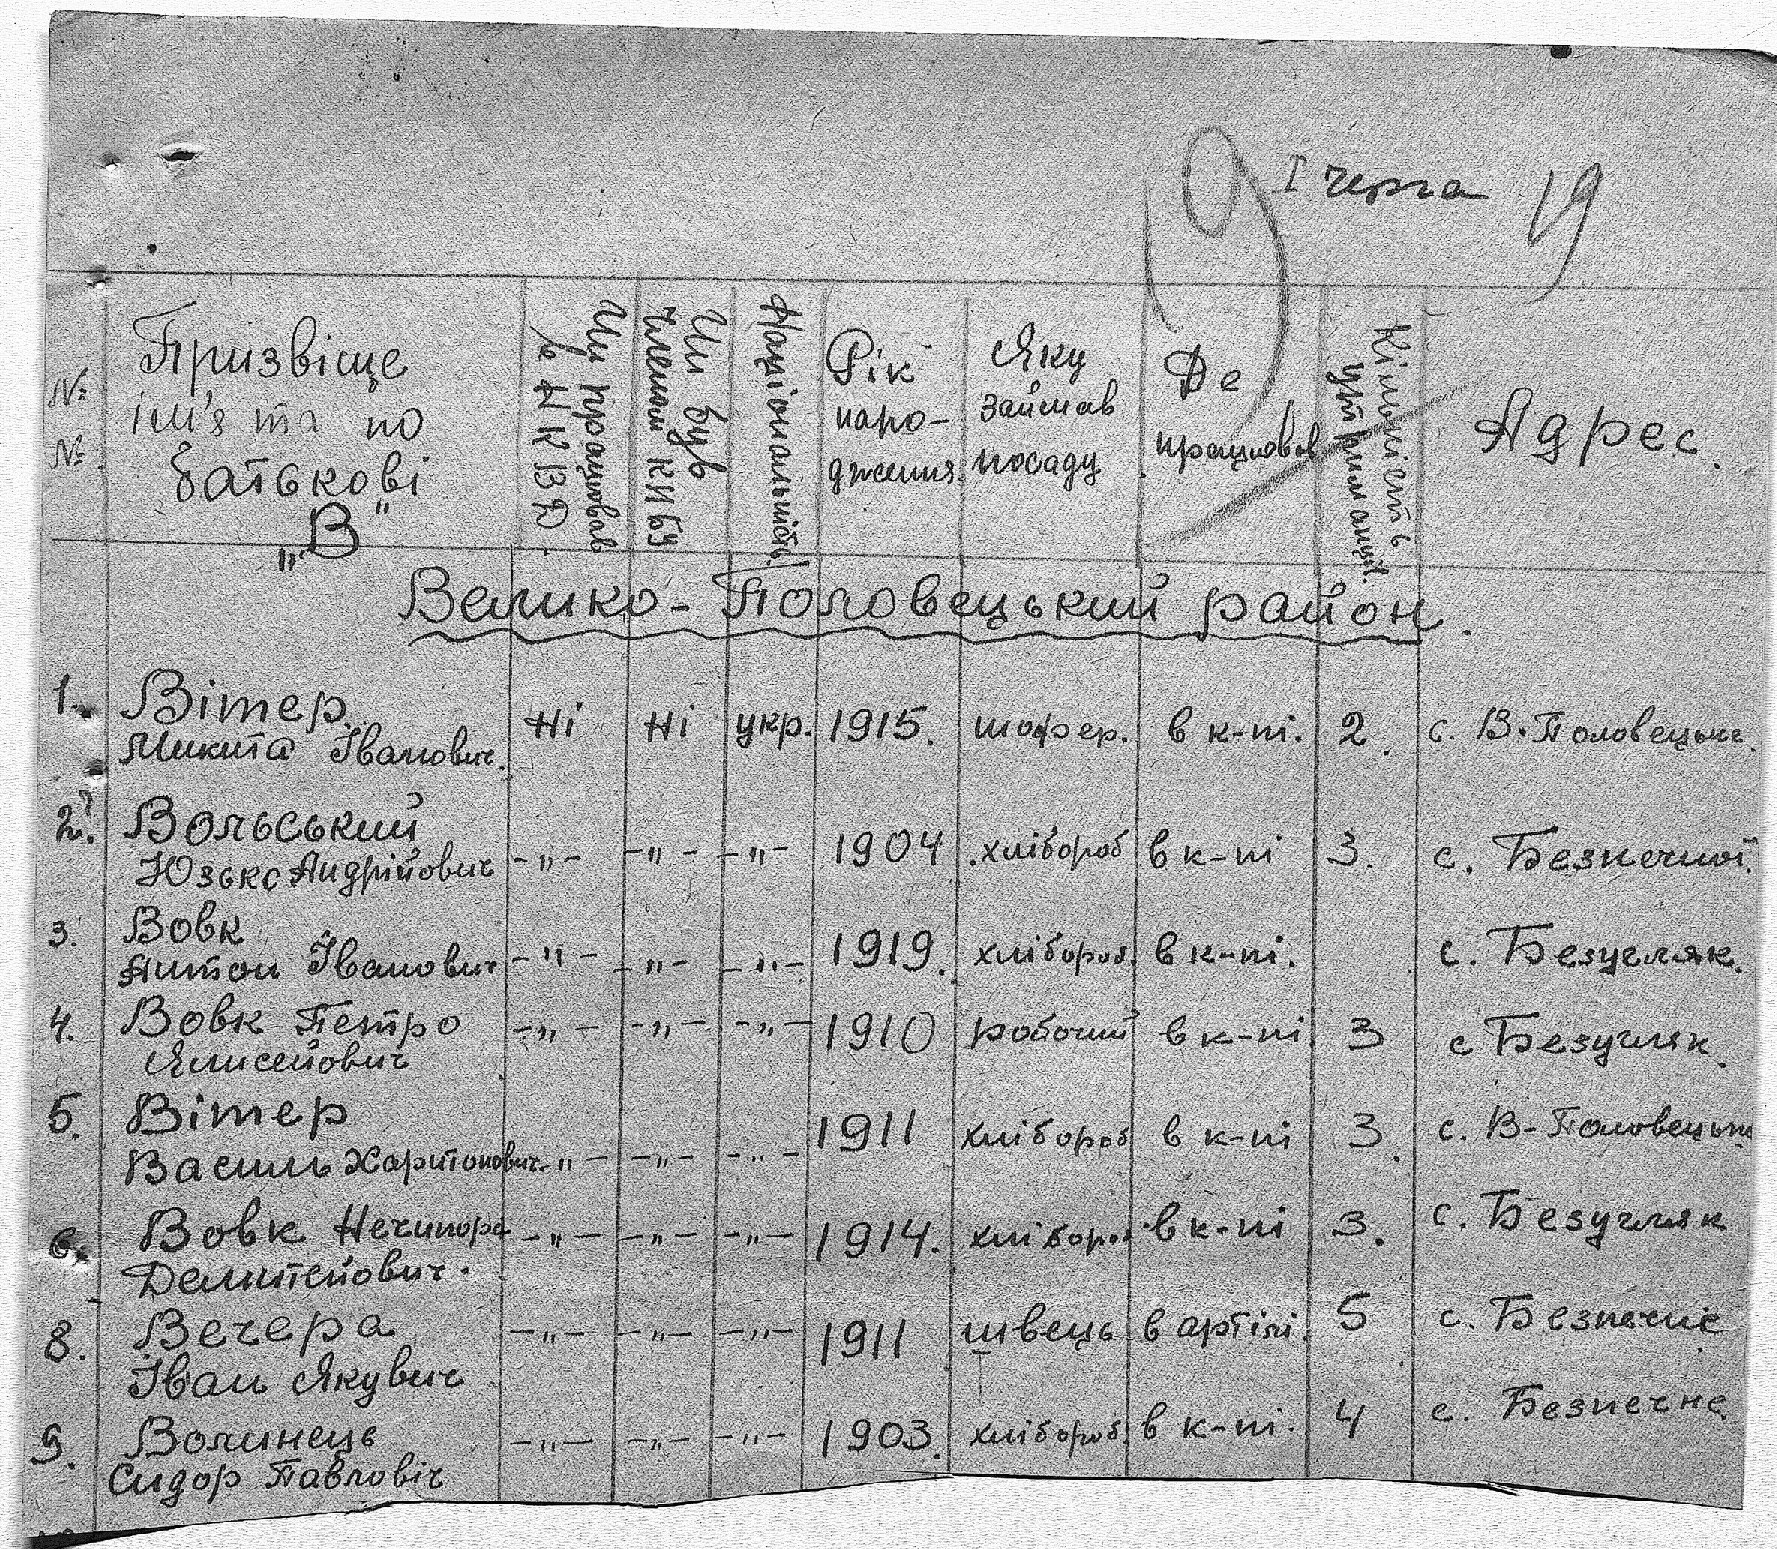 I черга 19
№ №
Призвіще
ім'я та по
батькові
"В"
Чи працював
в НКВД.
Чи був
членом КП(б)У
Національність
Рік
наро-
дження
Яку
займав
посаду
Де
працював
Кількість
утриманців.
Адрес.
Велико-Половецький район.
1. Вітер Микита Іванович. Ні Ні укр. 1915. шофер. в к-пі. 2. с. В. Половецьке.
2. Вольський Юзько Андрійович -"- -"- -"- 1904 хлібороб в к-пі 3. с. Безпечної.
3. Вовк Антон Іванович -"- -"- -"- 1919. хлібороб. в к-пі. с. Безугляк.
4. Вовк Петро Ялисейович -"- -"- -"- 1910 робочий в к-пі 3 с Безугляк.
5. Вітер Василь Харитонович -"- -"- -"- 1911 хлібороб в к-пі 3. с. В-Половецьке
6. Вовк Нечипор Демитейович. -"- -"- -"- 1914. хлібороб в к-пі 3. с. Безугляк
8. Вечера Іван Якувич -"- -"- -"- 1911 швець в артілі. 5 с. Безпечне
9. Волинець Сидор Павловіч -"- -"- -"- 1903. хлібороб. в к-пі. 4 с. Безпечне